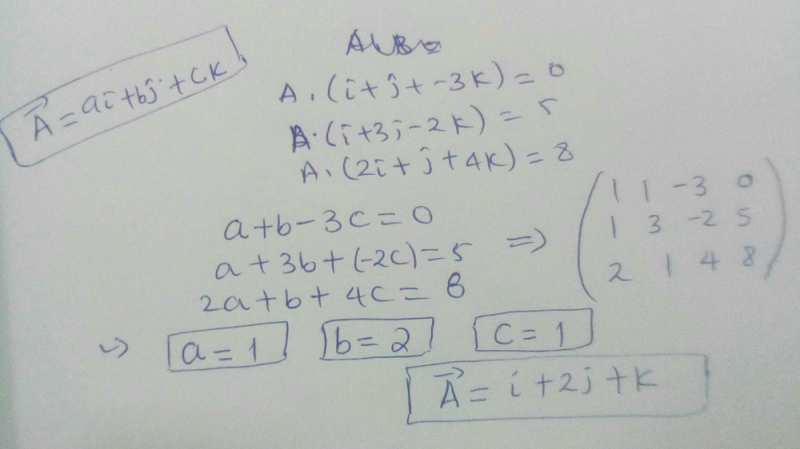 A⃗ = ai+bj+ck
A.(i+j+-3k)=0
A.(i+3j-2k)=5
A.(2i+j+4k)=8
a+b-3c=0
a+3b+(-2c)=5
2a+b+4c=8
⇒
1 1 -3 0
1 3 -2 5
2 1 4 8
↪ a=1 b=2 c=1
A⃗ = i+2j+k